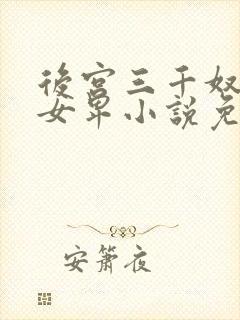 後宮三千奴
女卑小說免
安簫夜